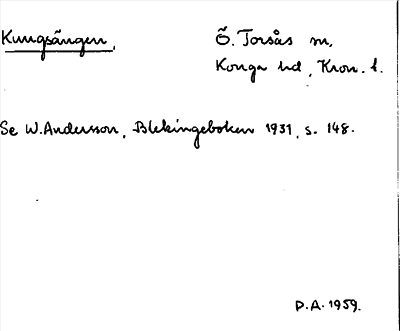 Kungsängen, Ö. Torsås sn,
Konga hd, Kron. l.
Se W. Andersson, Blekingeboken 1931, s. 148.
P.A. 1959.